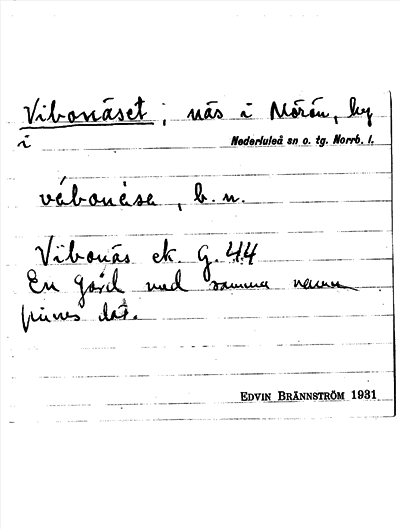 Vibonäset ; näs i Mörön, by
i Nederluleå sn o. tg. Norrb. l.
vébonése, b. n.
Vibonäs ek G. 44
En gård med samma namn
finnes där.
EDVIN BRÄNNSTRÖM 1931